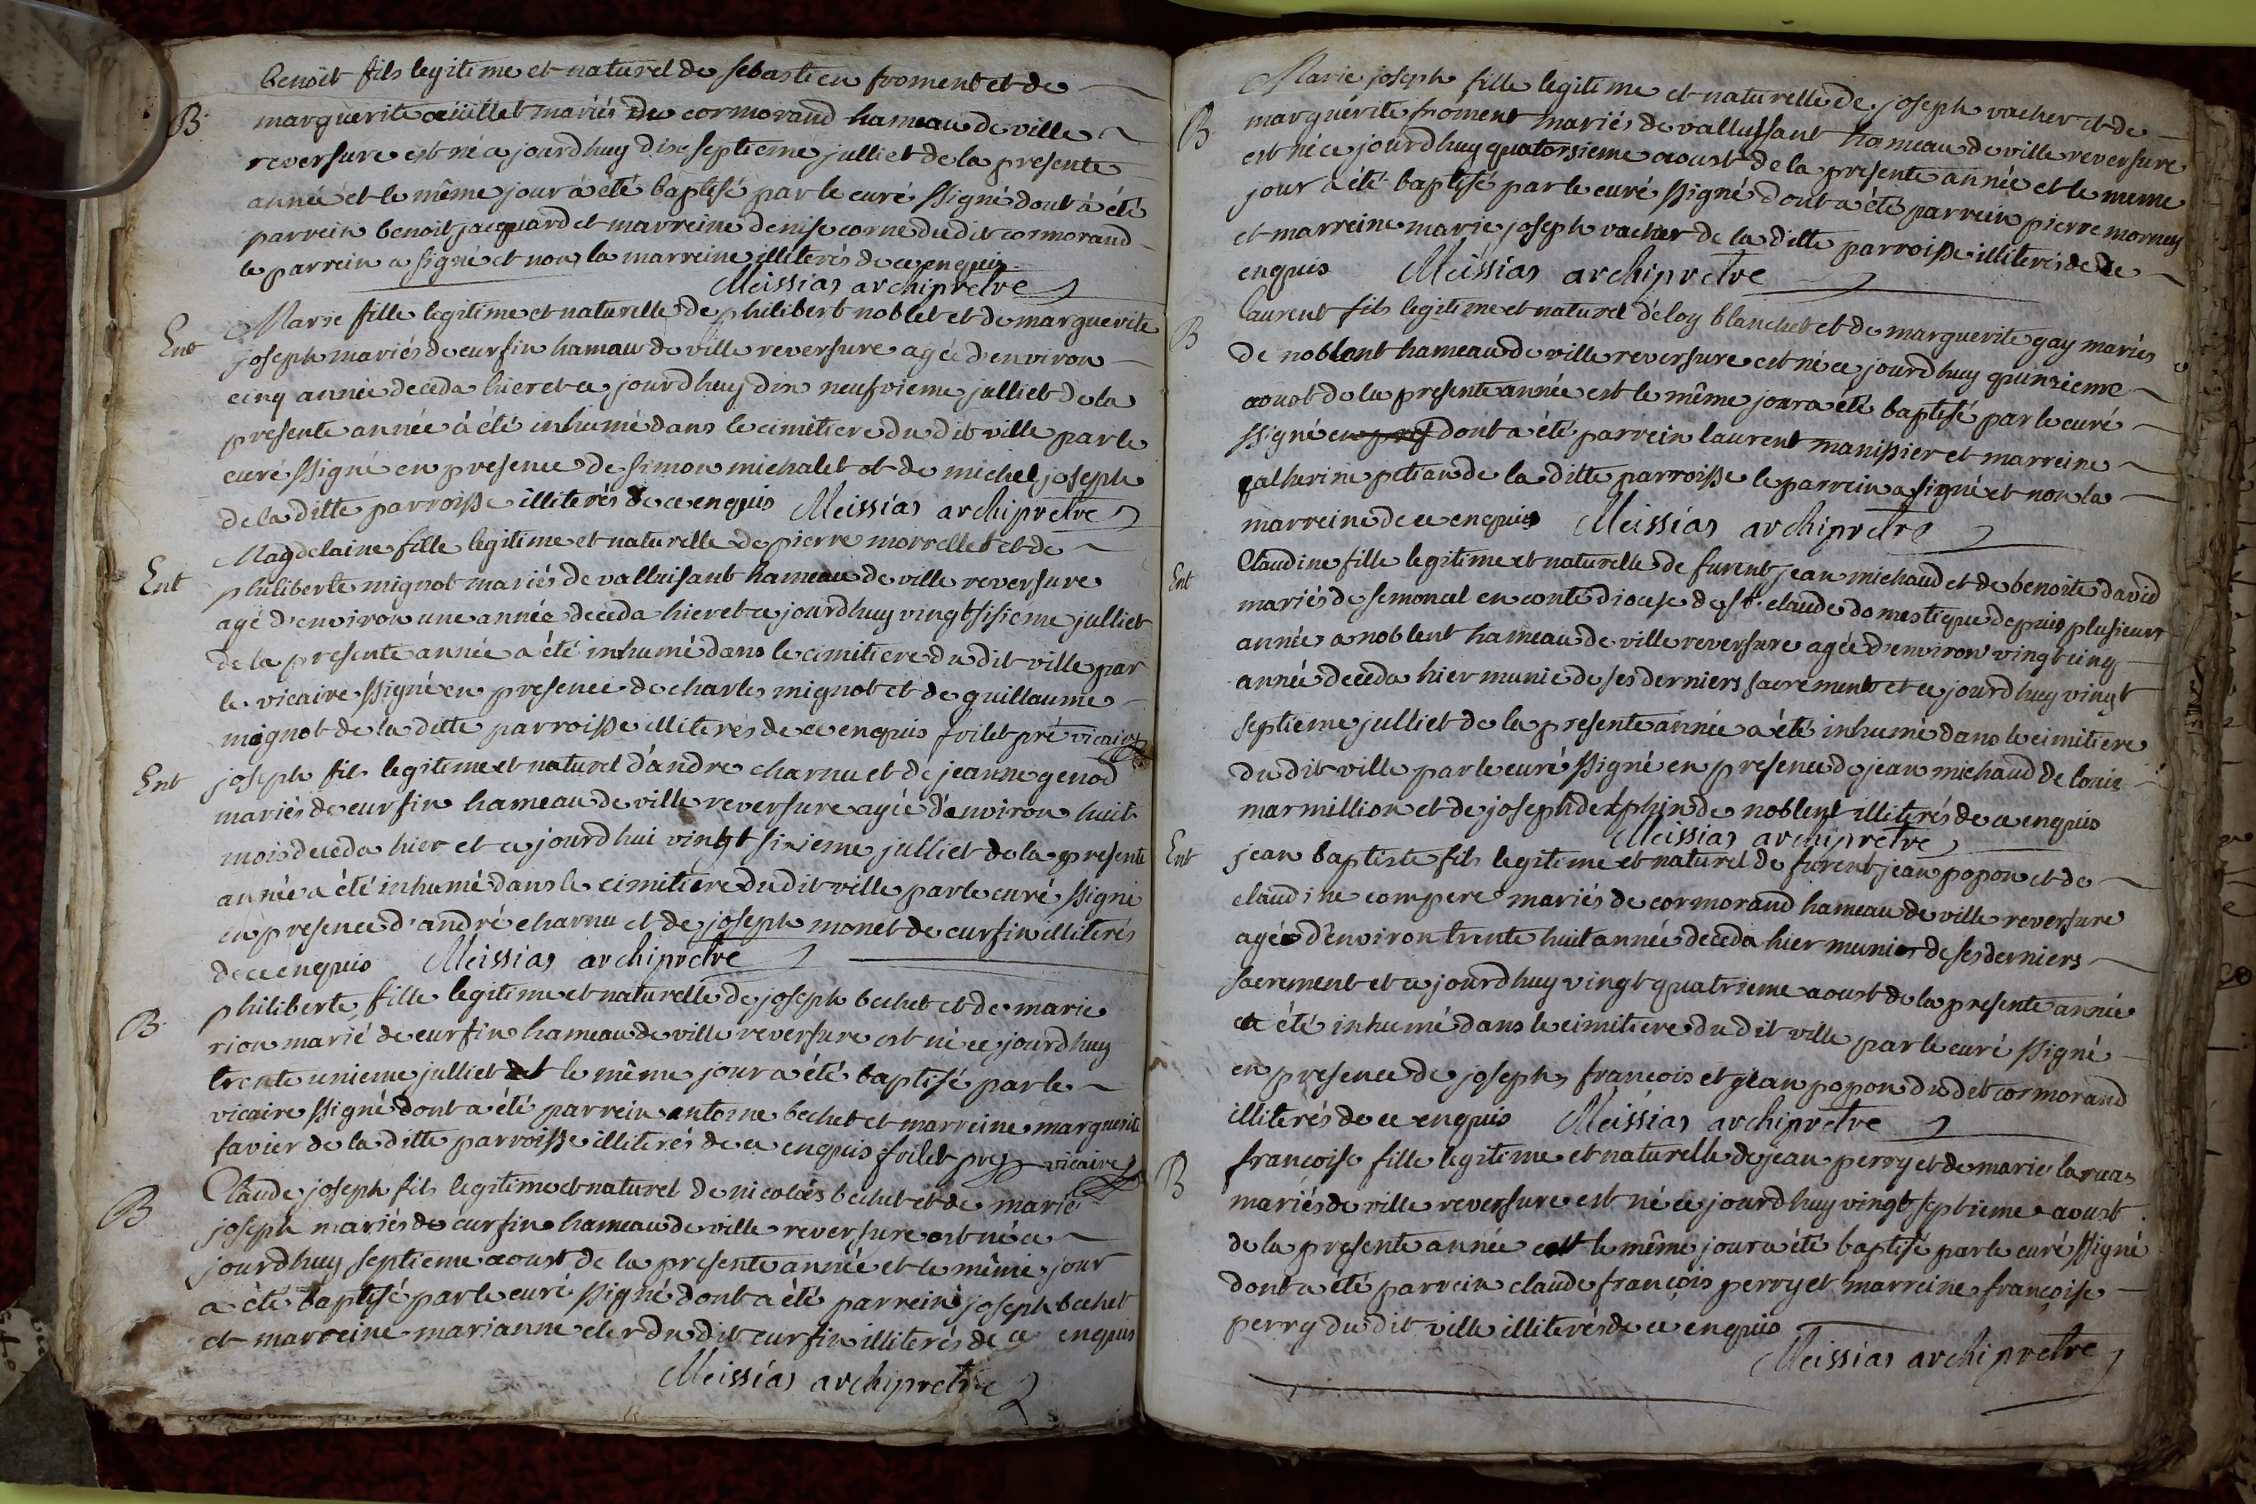 benoit fils legitime et naturel de sebastien froment et de
B marguerite mariés de cormorand hameau de ville
reversure est né ce jourd huy dix septieme julliet de la presente
année et le même jour à eté baptisé par le curé ssigné dont à été
parrein benoit jacquard et marreine denise corne du dit cormorand
le parrein a signé et non la marreine illiterés de ce enquis
Meissias archipretre
Ent Marie fille legitime et naturelle de philibert noblet et de marguerite
joseph mariés de curfin hamau de ville reversure agée d'environ
cinq année deceda hier et ce jourdhuy dix neufvieme julliet de la
presente année à été inhumé dans le cimitiere du dit ville par le
curé ssigné en presence de simon michalet et de michel joseph
de la ditte parroisse illiterés de ce enquis Meissias archipretre
Magdelaine fille legitime et naturelle de pierre morrellet et de
Ent philiberte mignot mariés de valluisant hameau de ville reversure
agé d'environ une année deceda hier et ce jourdhuy vingt sisieme julliet
de la presente année a été inhumé dans le cimitiere du dit ville par
le vicaire ssigné en presence de charles mignot et de guillaume
mignot de la ditte parroisse illiterés de ce enquis foilet pre vicaire
Ent joseph fils legitime et naturel d'andre charnu et de jeanne genod
mariés de curfin hameau de ville reversure agée d'environ huit
mois deceda hier et ce jourd hui vingt sixieme julliet de la presente
année a été inhumé dans le cimitiere du dit ville par le curé ssigné
en presence d'andré charnu et de joseph monet de curfin illiterés
de ce enquis Meissias archipretre
philiberte fille legitime et naturelle de joseph bechet et de marie
B rion marié de curfin hameau de ville reversure est né ce jourdhuy
trente unieme julliet et le même jour a été baptisé par le
vicaire ssigné dont a été parrein antoine bechet et marreine marguerite
favier de la ditte parroisse illiterés de ce enquis foilet pre vicaire
Claude joseph fils legitime et naturel de nicolas bechet et de marie
B joseph mariés de curfin hameau de ville reversure est né ce
jourdhuy septieme aoust de la presente année et le même jour
a été baptisé par le curé ssigné dont a été parrein joseph bechet
et marreine marianne clerc du dit curfin illiterés de ce enquis
Meissias archipretre
Marie joseph fille legitime et naturelle de joseph vacher et de
B marguérite froment mariés de vallussant hameau de ville reversure
est né ce jourdhuy quatorsieme aoust de la presente année et le meme
jour a été baptisé par le curé ssigné dont a été parrein pierre mornay
et marreine marie joseph vacher de la ditte parroisse illiterés de ce
enquis Meissias archipretre
laurent fils legitime et naturel d'eloy blanchet et de marguerite gay mariés
B de noblent hameau de ville reversure est né ce jourdhuy quinzieme
aoust de la presente année est le même jour a été baptisé par le curé
ssigné en pres dont a été parrein laurent manissier et marreine
catherine petian de la ditte parroisse le parrein a signé et non la
marreine de ce enquis Meissias archipretre
Claudine fille legitime et naturelle de furent jean michaud et de benoite david
Ent mariés de semoncel en conté diocese de st. claude domestique depuis plusieurs
année a noblent hameau de ville reversure agée d'environ vingt cinq
année deceda hier munie de ses derniers sacrement et ce jourdhuy vingt
septieme julliet de la presente année a été inhumé dans le cimitiere
du dit ville par le curé ssigné en presence de jean michaud de
marmillion et de joseph delphin de noblent illiterés de ce enquis
Meissias archipretre
Ent jean baptiste fils legitime et naturel de furent jean popon et de
claudine compere mariés de cormorand hameau de ville reversure
agée d'environ trente huit année deceda hier munier de ses derniers
sacrement et ce jourdhuy vingt quatrieme aoust de la presente année
a été inhumé dans le cimitiere du dit ville par le curé ssigné
en presence de joseph, francois et jean popon du dit cormorand
illiterés de ce enquis Meissias archipretre
B francoise fille legitime et naturelle de jean perry et de marie laruas
mariés de ville reversure est né ce jourdhuy vingt septieme aoust
de la presente année est le même jour a été baptisé par le curé ssigné
dont a été parrein claude françois perry et marreine françoise
perry du dit ville illiterés de ce enquis
Meissias archipretre